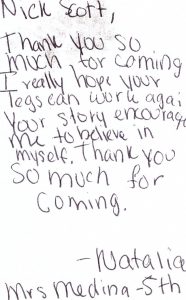 Nick Scott,
Thank you so
much for coming
I really hope your
legs can work agai
your story encourage
me to believe in
myself. Thank you
so much for
Coming.
-Natalia
Mrs Medina-5th